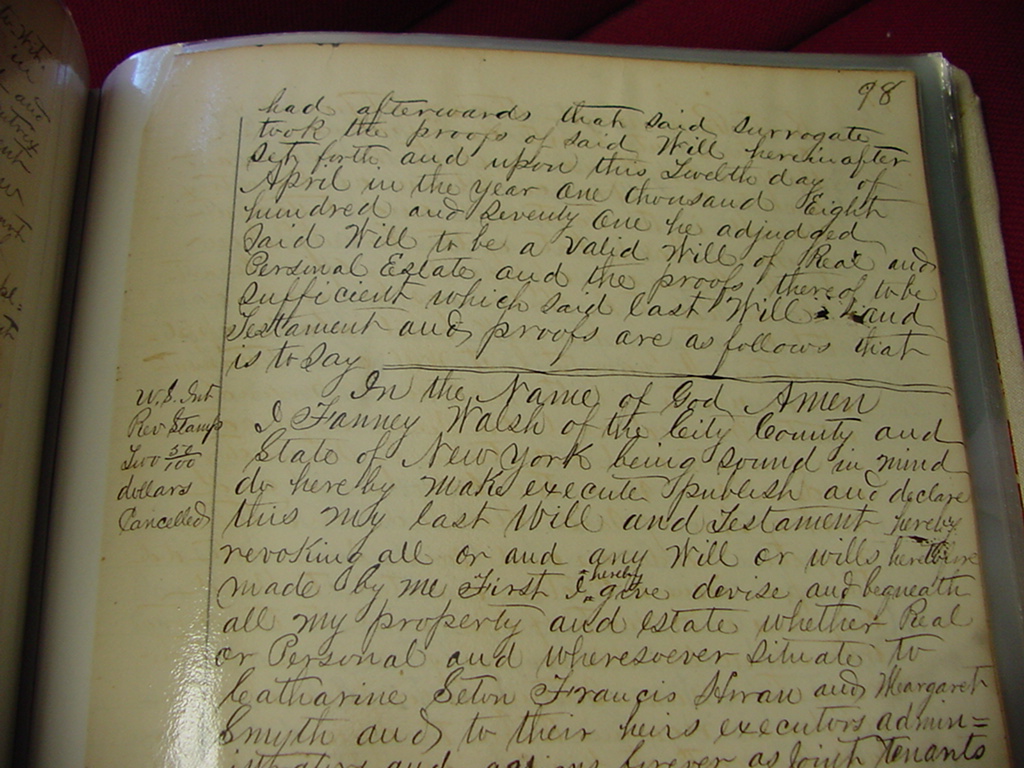 98
had afterwards that said Surrogate
took the proofs of said Will hereinafter
set forth and upon this Twelfth day of
April in the year One thousand Eight
hundred and Seventy One he adjudged
said Will to be a Valid Will of Real and
Personal Estate and the proofs thereof to be
sufficient which said last Will and
Testament and proofs are as follows that
is to say
In the Name of God Amen
U.S. Int
Rev Stamps
Two 50/100
dollars
Cancelled
I Fanney Walsh of the City County and
State of New York being sound in mind
do hereby make execute publish and declare
this my last Will and Testament hereby
revoking all or and any Will or wills heretofore
made by me First I hereby give devise and bequeath
all my property and estate whether Real
or Personal and wheresoever situate to
Catharine Seton Francis and Margaret
Smyth and to their heirs executors admin=
and forever as Joint tenants